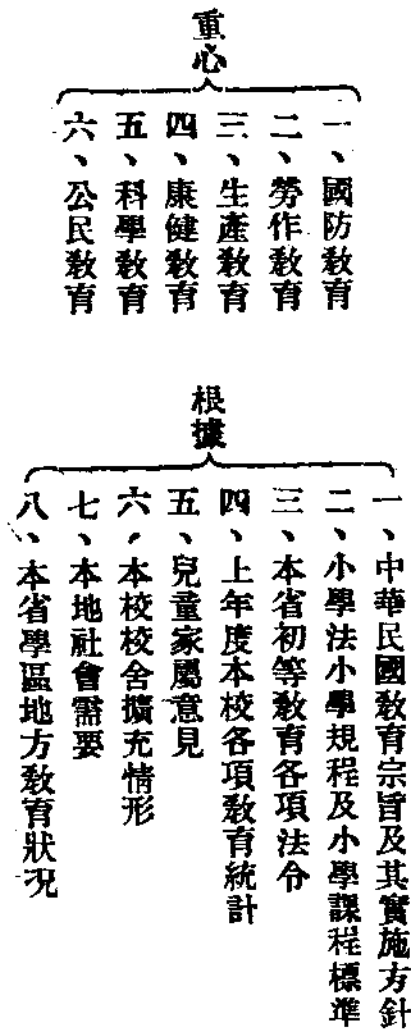 重心
一、國防敎育
二、勞作敎育
三、生產敎育
四、康健敎育
五、科學敎育
六、公民敎育
根據
一、中華民國敎育宗旨及其實施方針
二、小學法小學規程及小學課程標準
三、本省初等敎育各項法令
四、上年度本校各項敎育統計
五、兒童家屬意見
六、本校校舍擴充情形
七、本地社會需要
八、本省學區地方敎育狀況